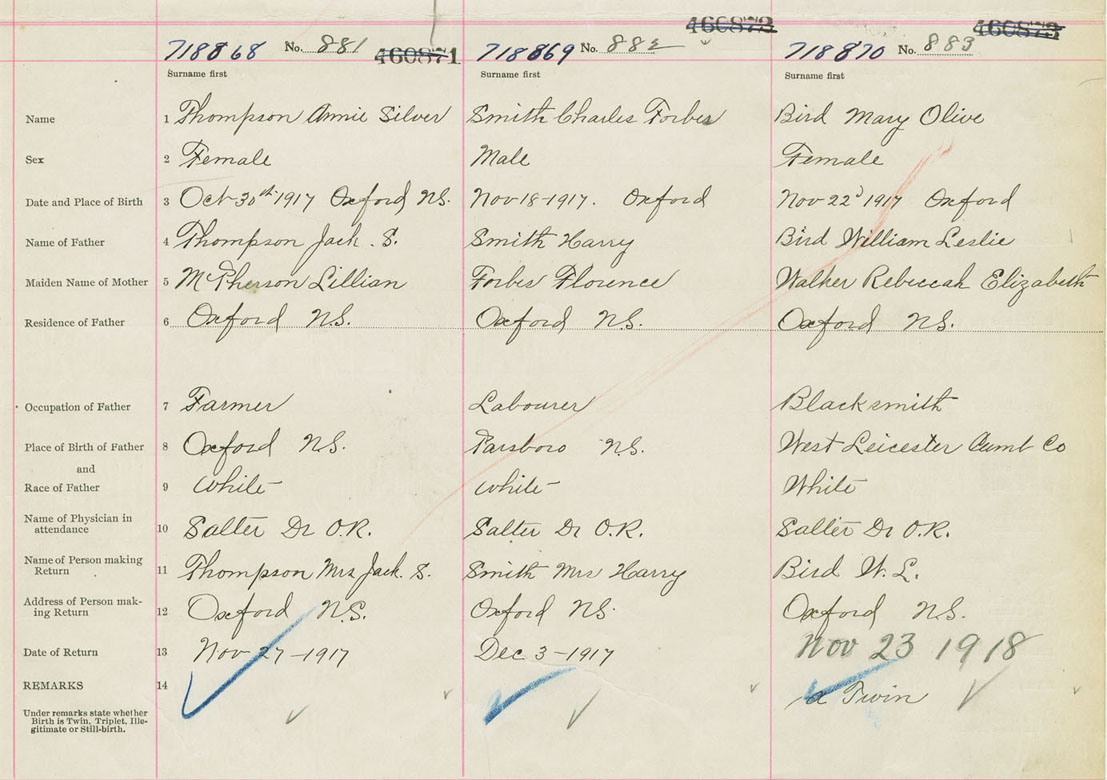 460872 460873
718868 No. 881 460871 718869 No. 882 718870 No. 883
Surname first Surname first Surname first
Name 1 Thompson Annie Silver Smith Charles Forbes Bird Mary Olive
Sex 2 Female Male Female
Date and Place of Birth 3 Oct 30th 1917 Oxford N.S. Nov 18-1917. Oxford Nov 22d 1917 Oxford
Name of Father 4 Thompson Jack . S. Smith Harry Bird William Leslie
Maiden Name of Mother 5 McPherson Lillian Forbes Florence Walker Rebeccah Elizabeth
Residence of Father 6 Oxford N.S. Oxford N.S. Oxford N.S.
Occupation of Father 7 Farmer Labourer Blacksmith
Place of Birth of Father 8 Oxford N.S. Parsboro N.S. West Leicester Cumb Co
and
Race of Father 9 White White White
Name of Physician in
attendance 10 Salter Dr O.R. Salter Dr O.R. Salter Dr O.R.
Name of Person making
Return 11 Thompson Mrs Jack. S. Smith Mrs Harry Bird W. L.
Address of Person mak-
ing Return 12 Oxford N.S. Oxford NS. Oxford N.S.
Date of Return 13 Nov 27-1917 Dec 3-1917 Nov 23 1918
REMARKS 14 a Twin
Under remarks state whether
Birth is Twin, Triplet, Ille-
gitimate or Still-birth.